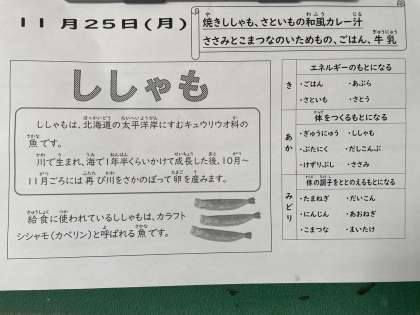 11月25日(月)
焼きししゃも、さといもの和風カレー汁
ささみとこまつなのいためもの、ごはん、牛乳
ししゃも
ししゃもは、北海道の太平洋岸にすむキュウリウオ科の
魚です。
川で生まれ、海で1年半くらいかけて成長した後、10月〜
11月ごろには再び川をさかのぼって卵を産みます。
給食に使われているししゃもは、カラフト
シシャモ(カペリン)と呼ばれる魚です。
エネルギーのもとになる
き
・ごはん ・あぶら
・さといも ・さとう
体をつくるもとになる
あか
・ぎゅうにゅう ・ししゃも
・ぶたにく ・だしこんぶ
・けずりぶし ・ささみ
体の調子をととのえるもとになる
みどり
・たまねぎ ・だいこん
・にんじん ・あおねぎ
・こまつな ・まいたけ